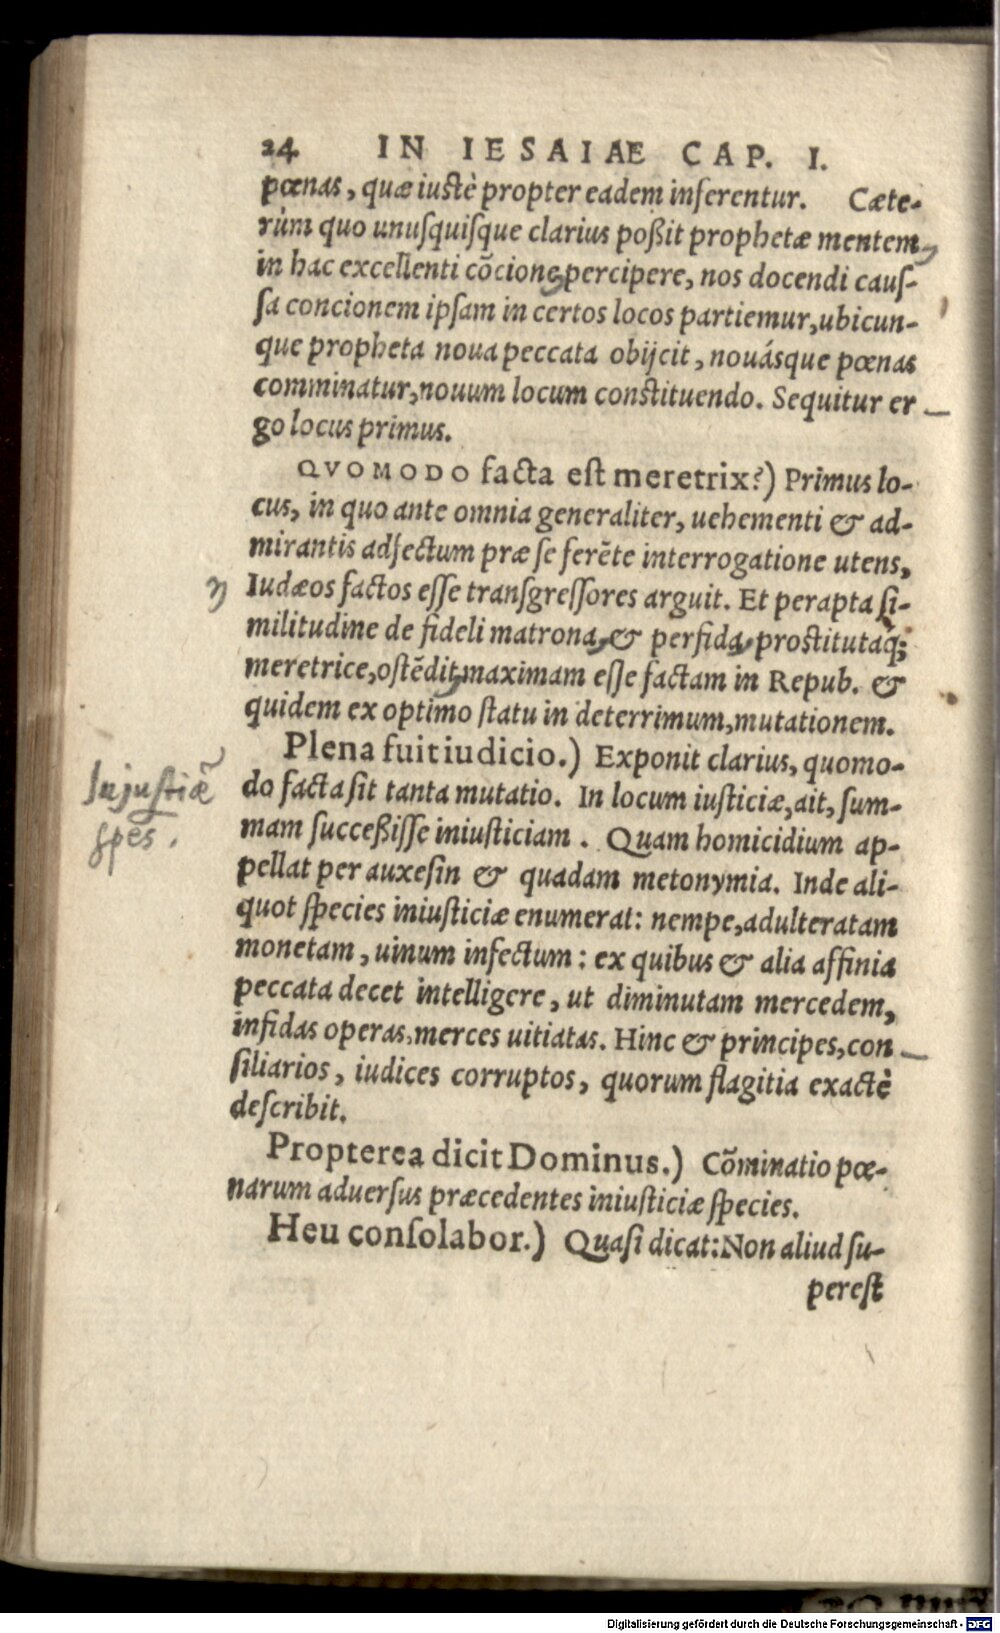 24 IN IESAIAE CAP. I.
pœnas, quæ iustè propter eadem inferentur. Cæte-
rùm quo unuſquiſque clarius poßit prophetæ mentem,
in hac excellenti cōcione, percipere, nos docendi cauſ-
ſa concionem ipſam in certos locos partiemur, ubicun-
que propheta noua peccata obijcit, nouásque pœnas
comminatur, nouum locum constituendo. Sequitur er
go locus primus.
QVOMODO facta eſt meretrix?) Primus lo-
cus, in quo ante omnia generaliter, uehementi & ad-
mirantis adfectum præ ſe ferēte interrogatione utens,
Iudæos factos eſſe tranſgreſſores arguit. Et perapta ſi-
militudine de fideli matrona, & perfida, prostitutaq́;
meretrice, oſtēdit, maximam eſſe factam in Repub. &
quidem ex optimo ſtatu in deterrimum, mutationem.
Plena fuit iudicio.) Exponit clarius, quomo-
do facta ſit tanta mutatio. In locum iuſticiæ, ait, ſum-
mam ſucceßiſſe iniuſticiam. Quam homicidium ap-
pellat per auxeſin & quadam metonymia. Inde ali-
quot ſpecies iniuſticiæ enumerat: nempe, adulteratam
monetam, uinum infectum: ex quibus & alia affinia
peccata decet intelligere, ut diminutam mercedem,
infidas operas, merces uitiatas. Hinc & principes, con
ſiliarios, iudices corruptos, quorum flagitia exactè
deſcribit.
Injuſtiæ
ſpēs.
Propterea dicit Dominus.) Cōminatio pœ-
narum aduerſus præcedentes iniuſticiæ ſpecies.
Heu conſolabor.) Quaſi dicat: Non aliud ſu-
pereſt
Digitalisierung gefördert durch die Deutsche Forschungsgemeinschaft - DFG